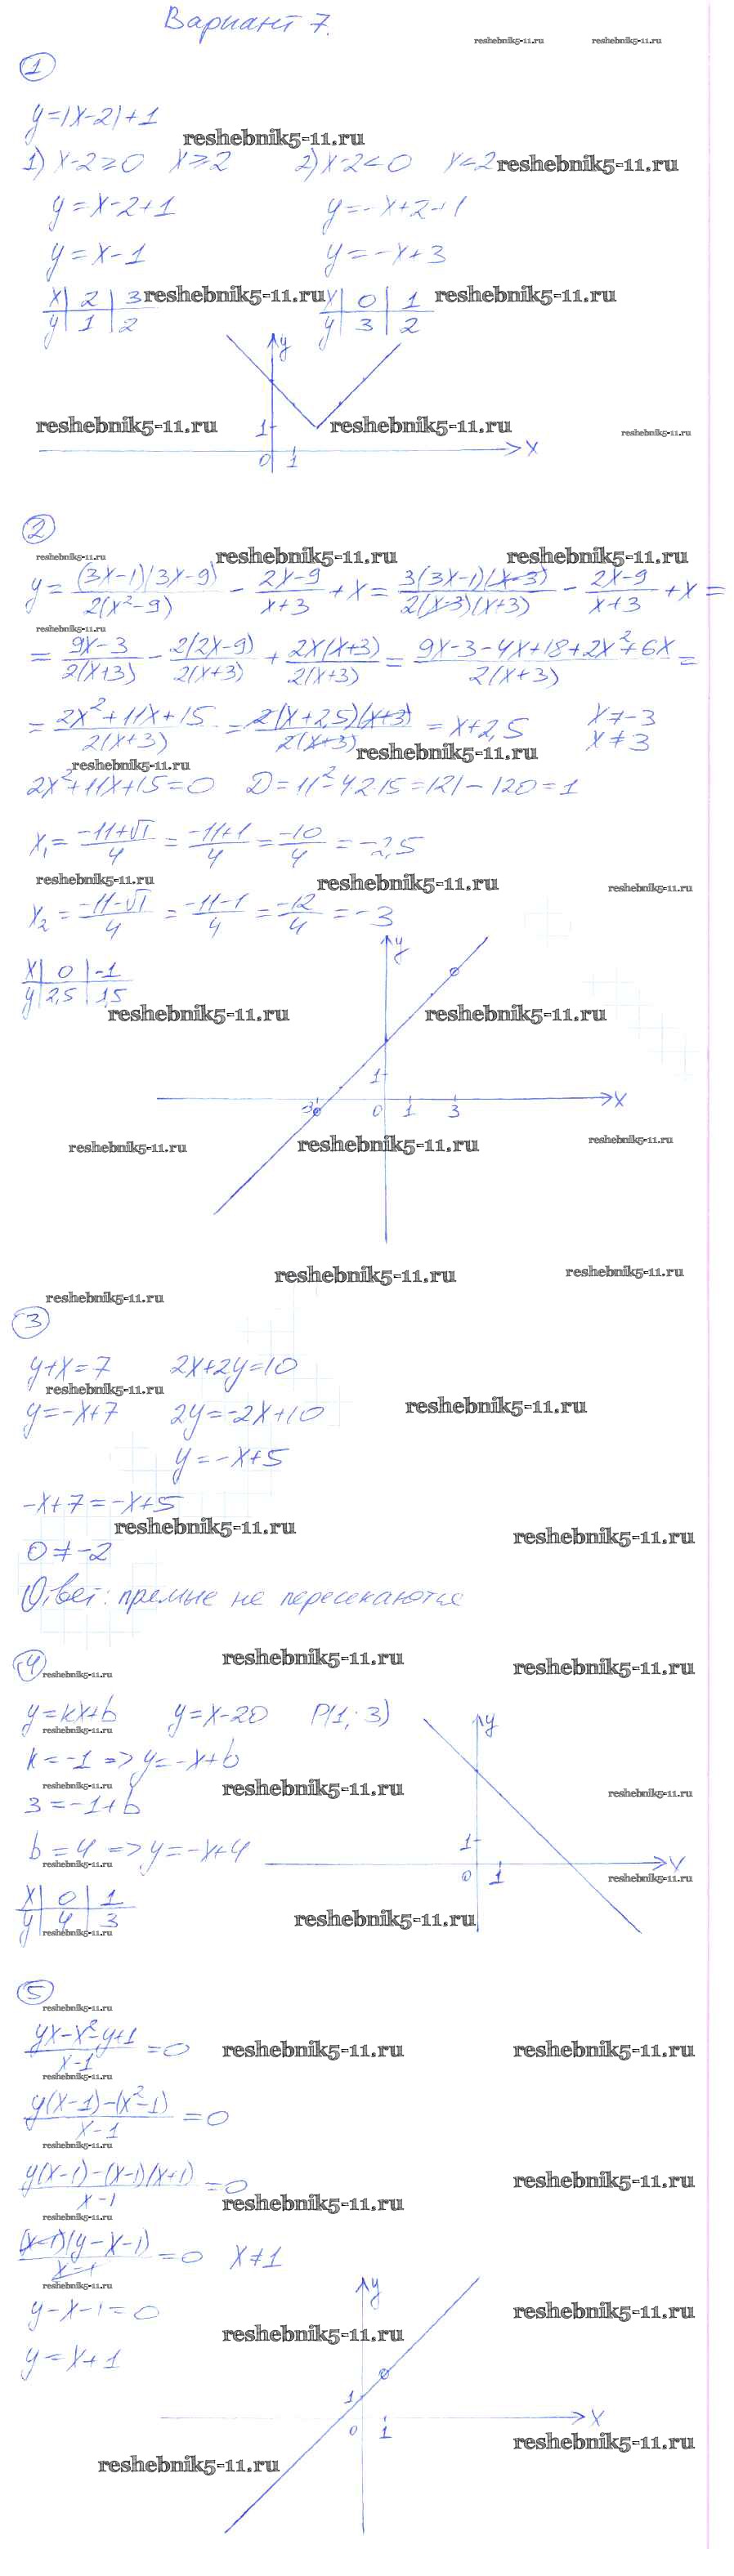 Вариант 7.
reshebnik5-11.ru reshebnik5-11.ru
1
y=|x-2|+1
reshebnik5-11.ru
1) x-2≥0 x≥2 2) x-2<0 x<2 reshebnik5-11.ru
y=x-2+1 y=-x+2+1
y=x-1 y=-x+3
x 2 3 reshebnik5-11.ru x 0 1 reshebnik5-11.ru
y 1 2 y 3 2
y
reshebnik5-11.ru 1 reshebnik5-11.ru reshebnik5-11.ru
0 1 x
2
reshebnik5-11.ru reshebnik5-11.ru reshebnik5-11.ru
y = (3x-1)(3x-9)/2(x²-9) - (2x-9)/(x+3) + x = 3(3x-1)(x-3)/2(x-3)(x+3) - (2x-9)/(x+3) + x =
reshebnik5-11.ru
= (9x-3)/2(x+3) - 2(2x-9)/2(x+3) + 2x(x+3)/2(x+3) = (9x-3-4x+18+2x²+6x)/2(x+3) =
= (2x²+11x+15)/2(x+3) = 2(x+2,5)(x+3)/2(x+3) = x+2,5 x≠-3
x≠3
reshebnik5-11.ru
reshebnik5-11.ru
2x²+11x+15=0 D=11²-4·2·15=121-120=1
x₁ = (-11+√1)/4 = (-11+1)/4 = -10/4 = -2,5
reshebnik5-11.ru reshebnik5-11.ru reshebnik5-11.ru
x₂ = (-11-√1)/4 = (-11-1)/4 = -12/4 = -3
y
x 0 -1
y 2,5 1,5
reshebnik5-11.ru reshebnik5-11.ru
1
-3 0 1 3 x
reshebnik5-11.ru reshebnik5-11.ru reshebnik5-11.ru
reshebnik5-11.ru reshebnik5-11.ru
reshebnik5-11.ru
3
y+x=7 2x+2y=10
reshebnik5-11.ru reshebnik5-11.ru
y=-x+7 2y=-2x+10
y=-x+5
-x+7=-x+5
reshebnik5-11.ru reshebnik5-11.ru
0≠-2
Ответ: прямые не пересекаются
4 reshebnik5-11.ru reshebnik5-11.ru reshebnik5-11.ru
y=kx+b y=x-20 P(1; 3) y
reshebnik5-11.ru
k=-1 => y=-x+b
reshebnik5-11.ru reshebnik5-11.ru reshebnik5-11.ru
3=-1+b
b=4 => y=-x+4 1
reshebnik5-11.ru 0 1 x reshebnik5-11.ru
x 0 1
y 4 3 reshebnik5-11.ru
reshebnik5-11.ru
5
reshebnik5-11.ru
(yx-x²-y+1)/(x-1) = 0 reshebnik5-11.ru reshebnik5-11.ru
reshebnik5-11.ru
(y(x-1)-(x²-1))/(x-1) = 0
reshebnik5-11.ru
(y(x-1)-(x-1)(x+1))/(x-1) = 0 reshebnik5-11.ru reshebnik5-11.ru
reshebnik5-11.ru
(x-1)(y-x-1)/(x-1) = 0 x≠1
reshebnik5-11.ru y
y-x-1=0 reshebnik5-11.ru
reshebnik5-11.ru
y=x+1
1
0 1 x
reshebnik5-11.ru
reshebnik5-11.ru